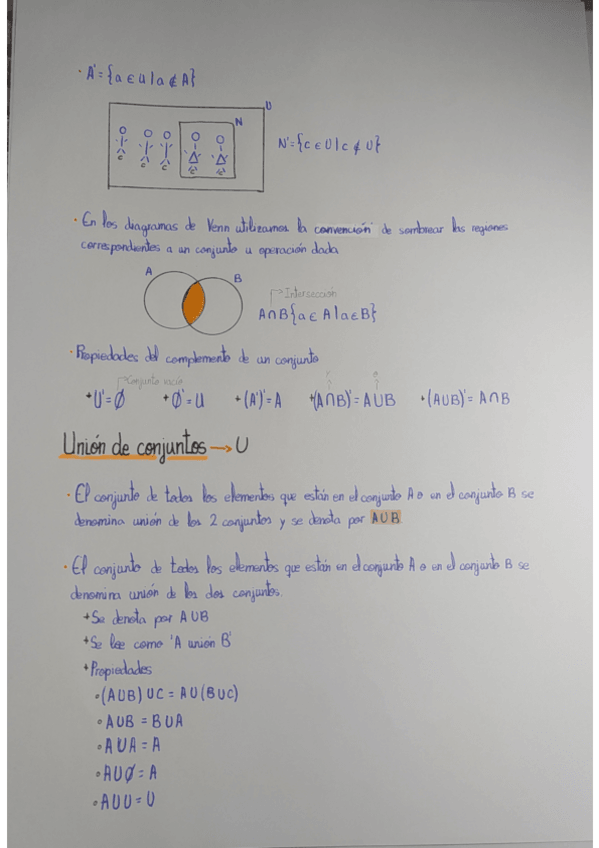 · A'={a ∈ U / a ∉ A}
U
N
c c c c c
N'={c ∈ U / c ∉ U}
· En los diagramas de Venn utilizamos la convención de sombrear las regiones
correspondientes a un conjunto u operación dada
A
B
Intersección
A∩B{a ∈ A / a ∈ B}
· Propiedades del complemento de un conjunto
Conjunto vacío
y
o
+U'=Ø +Ø'=U +(A')'=A +(A∩B)'=A∪B +(A∪B)'=A∩B
Unión de conjuntos → U
· El conjunto de todos los elementos que están en el conjunto A o en el conjunto B se
denomina unión de los 2 conjuntos y se denota por A∪B
· El conjunto de todos los elementos que están en el conjunto A o en el conjunto B se
denomina unión de los dos conjuntos.
+Se denota por A∪B
+Se lee como 'A unión B'
+Propiedades
∘(A∪B)∪C = A∪(B∪C)
∘A∪B = B∪A
∘A∪A = A
∘A∪Ø = A
∘A∪U = U